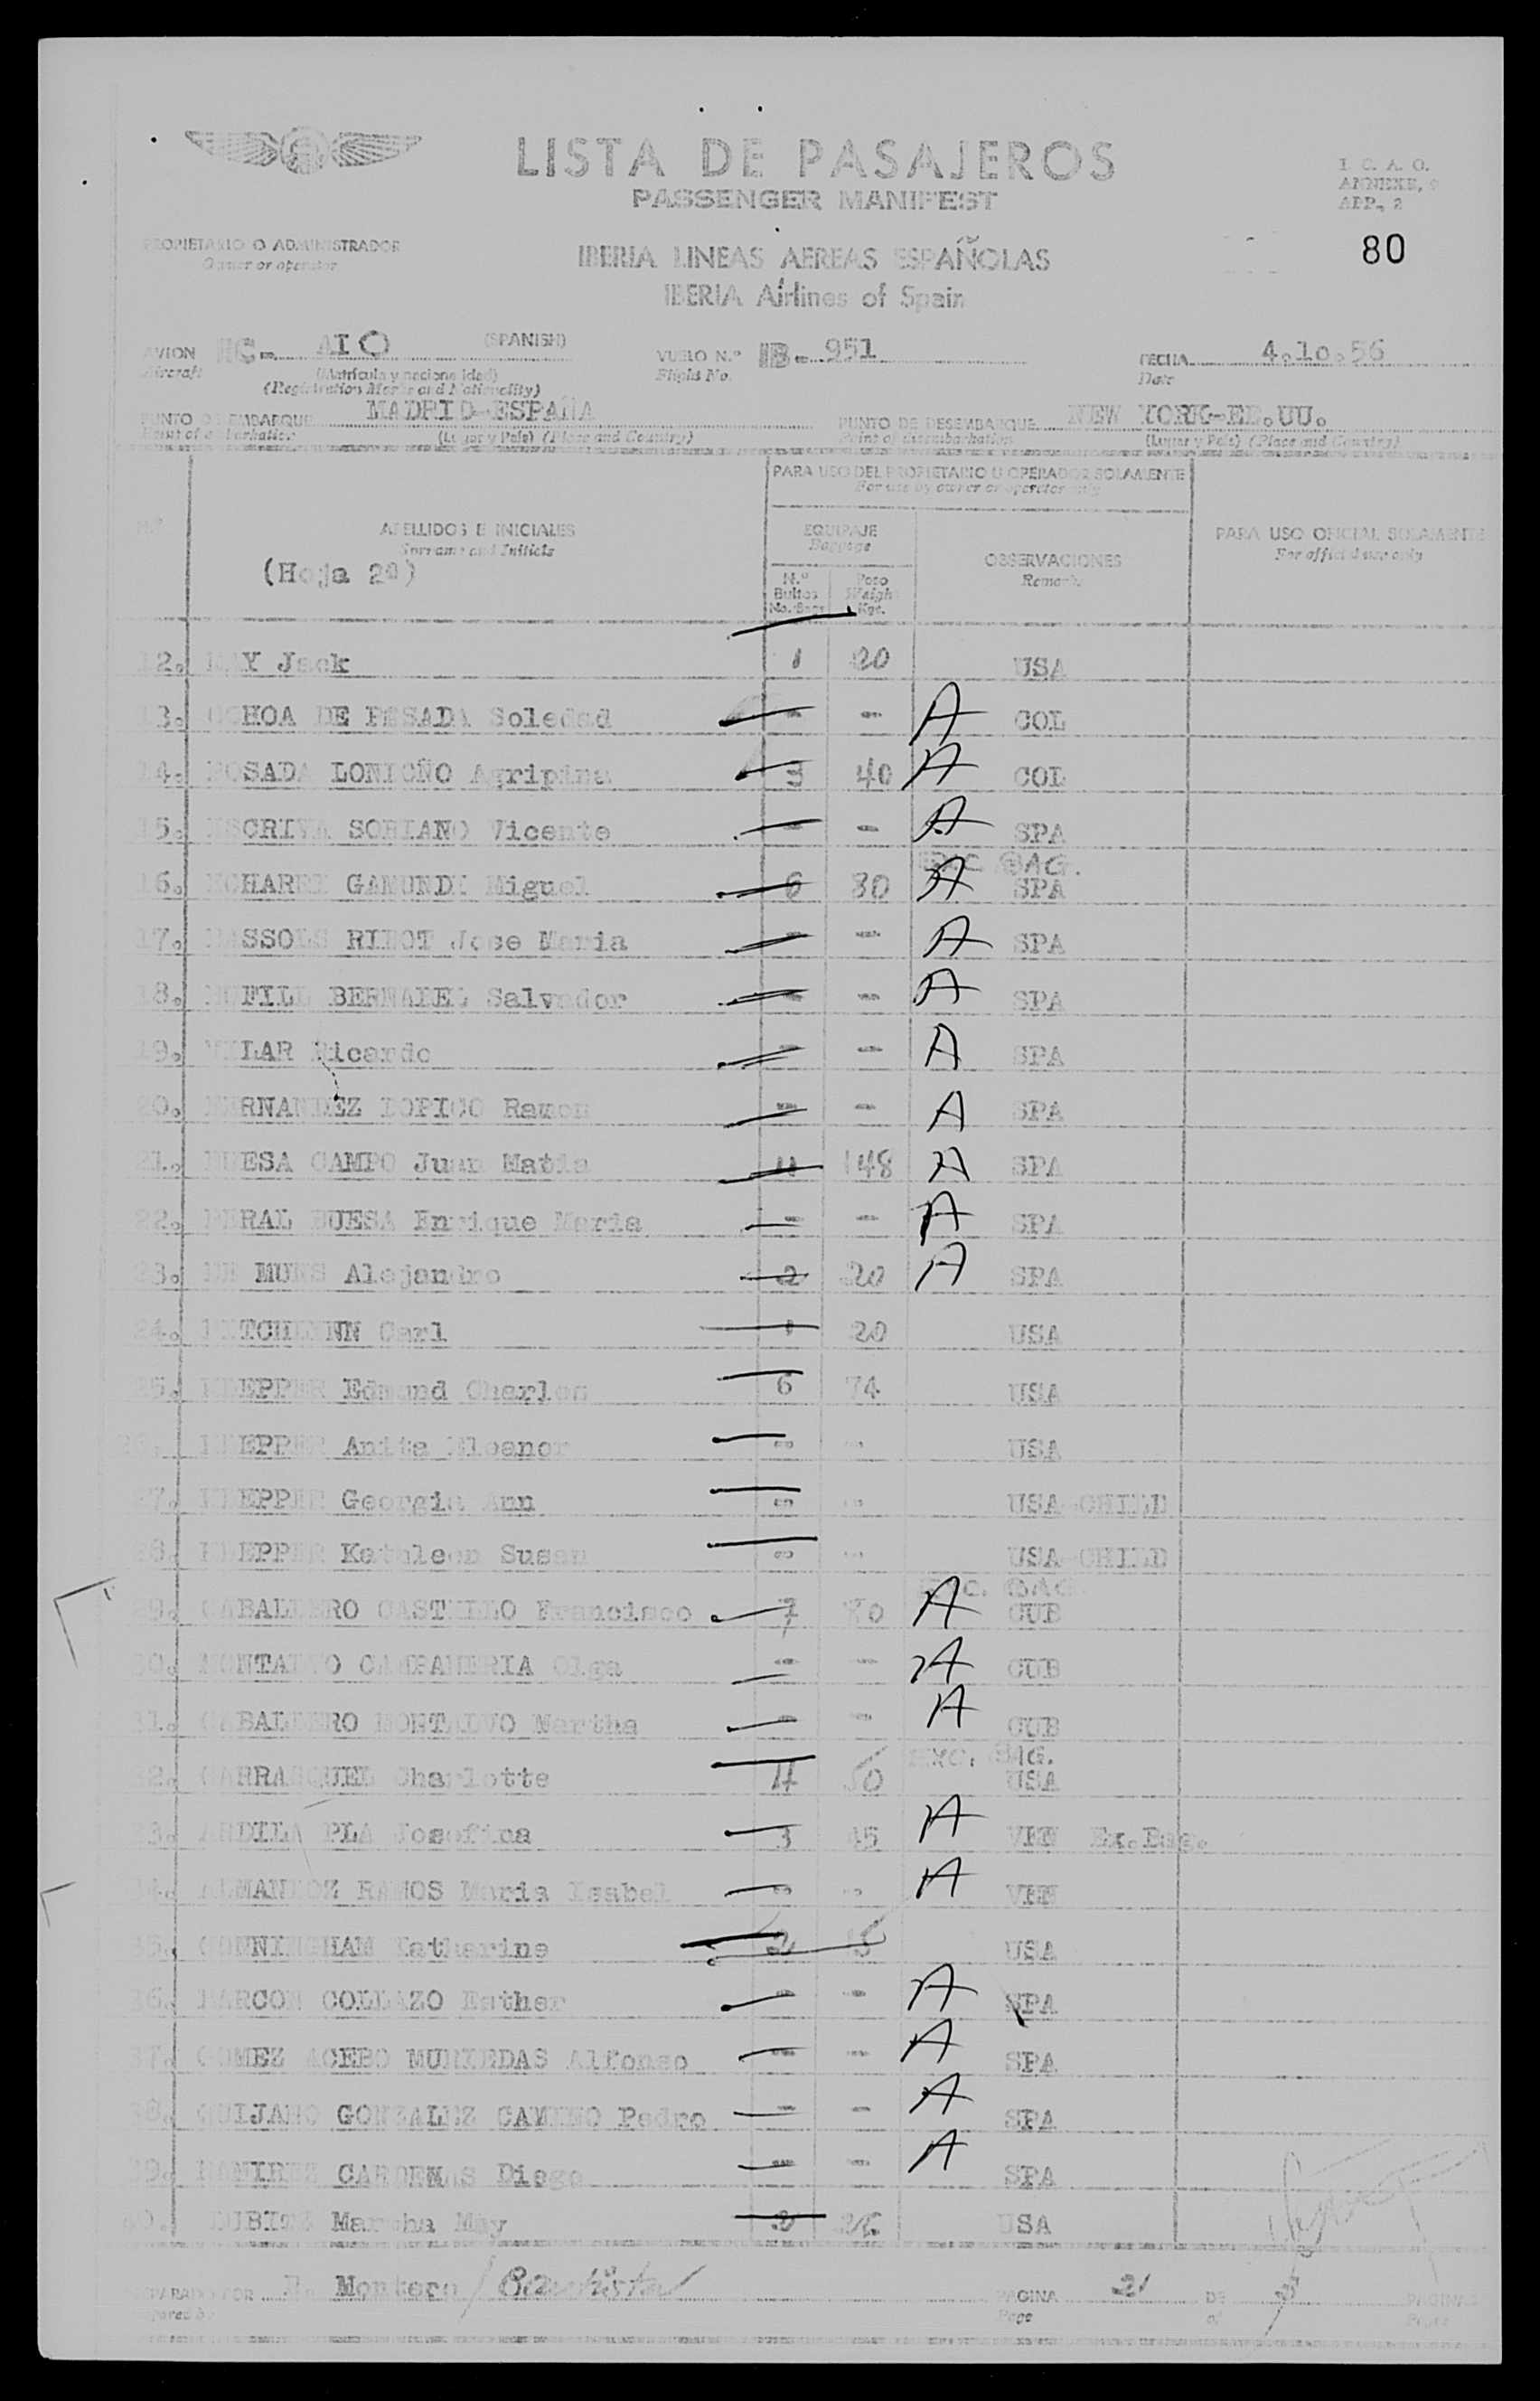 LISTA DE PASAJEROS
PASSENGER MANIFEST
I. C. A. O.
ANNEXE, 9
APP. 2
PROPIETARIO O ADMINISTRADOR
Owner or operator
IBERIA LINEAS AEREAS ESPAÑOLAS
IBERIA Airlines of Spain
80
AVION EC- AIO (SPANISH)
Aircraft
(Matrícula y nacionalidad)
(Registration Marks and Nationality)
VUELO N.º IB- 951
Flight No.
FECHA 4.10.56
Date
PUNTO DE EMBARQUE MADRID-ESPAÑA
Point of embarkation (Lugar y País) (Place and Country)
PUNTO DE DESEMBARQUE NEW YORK-EE.UU.
Point of disembarkation (Lugar y País) (Place and Country)
PARA USO DEL PROPIETARIO U OPERADOR SOLAMENTE
For use by owner or operator only
N.º
APELLIDOS E INICIALES
Surname and Initials
(Hoja 2ª)
EQUIPAJE
Baggage
N.º Bultos No. Bags
Peso Weight Kgs.
OBSERVACIONES
Remarks
PARA USO OFICIAL SOLAMENTE
For official use only
12. Jack 1 20 USA
13. OCHOA DE POSADA Soledad - - A COL
14. POSADA LONDOÑO Agripina 3 40 A COL
15. ESCRIVA SORIANO Vicente - - A SPA
EXC. BAG.
16. ECHARRI GAMUNDI Miguel 6 80 A SPA
17. BASSOLS RIBOT Jose Maria - - A SPA
18. BOFILL Salvador - - A SPA
19. Ricardo - - A SPA
20. HERNANDEZ LOPICO Ramon - - A SPA
21. BUESA CAMPO Juan Matia 11 148 A SPA
22. PERAL BUESA Enrique Maria - - A SPA
23. DE MUNS Alejandro 2 20 A SPA
24. Carl 1 20 USA
25. KLEPPER Edmund Charles 6 74 USA
26. KLEPPER Anita Eleanor - - USA
27. KLEPPER Georgia Ann - - USA-CHILD
28. KLEPPER Kathleen Susan - - USA-CHILD
EXC. BAG.
29. CABALLERO CASTILLO Francisco 7 80 A CUB
30. MONTALVO CAMPANERIA Olga - - A CUB
31. CABALLERO MONTALVO Martha - - A CUB
EXC. BAG.
32. CARRASQUEL Charlotte 4 50 USA
33. ARDILA PLA Josefina 3 45 A VEN Ex.Bag.
34. ALMANDOZ RAMOS Maria Isabel - - A VEN
35. CUNNINGHAM Katherine 2 15 USA
36. BARCON COLLAZO Esther - - A SPA
37. GOMEZ ACEBO MURIEDAS Alfonso - - A SPA
38. QUIJANO GONZALEZ CAMINO Pedro - - A SPA
39. RAMIREZ CARDENAS Diego - - A SPA
40. Martha May 2 USA
PREPARADO POR Montero / Bautista
Prepared by
PAGINA 2 DE 3 PAGINAS
Page of Pages